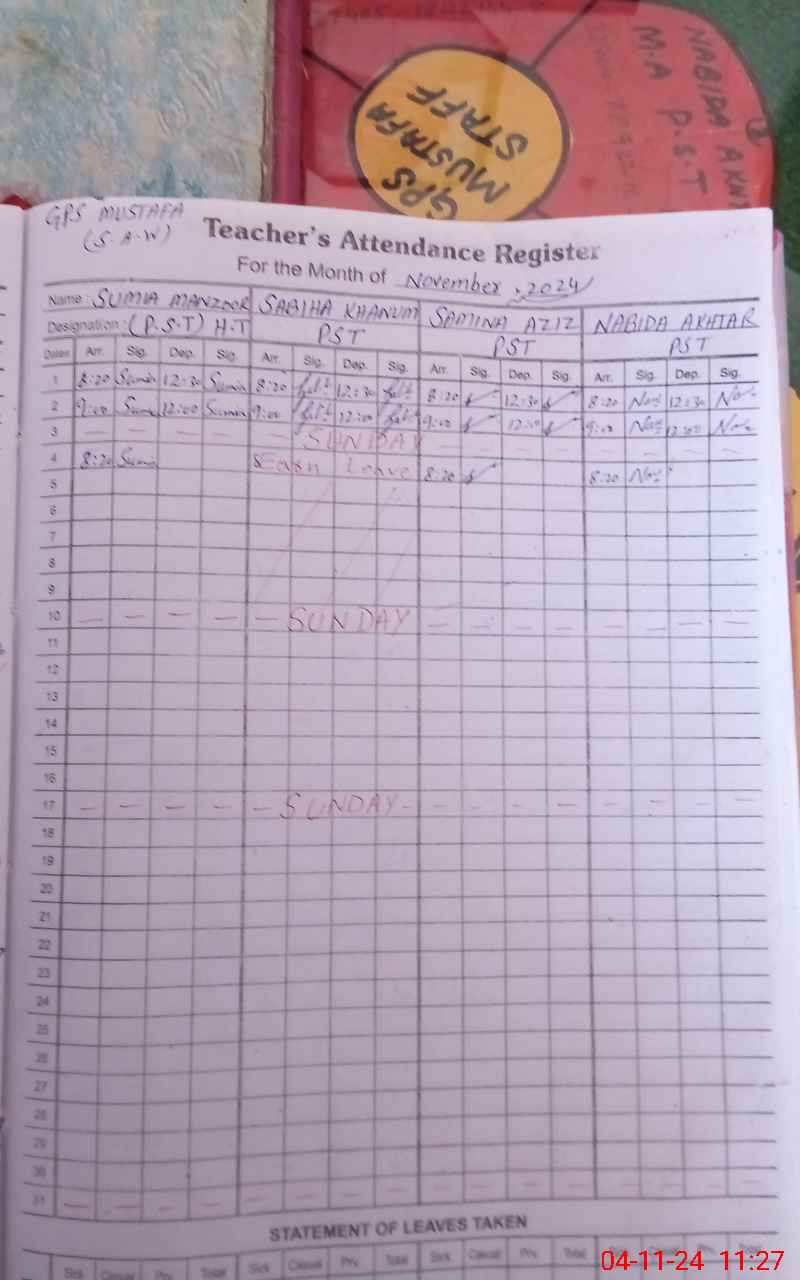 NABIDA AKH
M.A P.S.T
GPS
MUSTAFA
STAFF
GPS MUSTAFA
(S.A.W)
Teacher's Attendance Register
For the Month of November, 2024
Name: SUMIA MANZOOR SABIHA KHANUM SAMINA AZIZ NABIDA AKHTAR
Designation: (P.S.T) H.T PST PST PST
Dates Arr. Sig. Dep. Sig. Arr. Sig. Dep. Sig. Arr. Sig. Dep. Sig. Arr. Sig. Dep. Sig.
1 8:20 Sumia 12:30 Sumia 8:20 12:30 8:20 12:30 8:20 12:30
2 9:00 Sumia 12:00 Sumia 9:00 12:00 9:00 12:00 9:00 12:00
3 — — — — — SUNDAY — — — — — — — —
4 8:20 Sumia Leave 8:20 8:20
5
6
7
8
9
10 — — — — — SUNDAY — — — — — — — —
11
12
13
14
15
16
17 — — — — — SUNDAY — — — — — — — — —
18
19
20
21
22
23
24
25
26
27
28
29
30
31 — — — — — — — — — — — — — — — —
STATEMENT OF LEAVES TAKEN
Sick Casual Prv. Total Sick Casual Prv. Total Sick Casual Prv. Total Casual Prv. Total
04-11-24 11:27